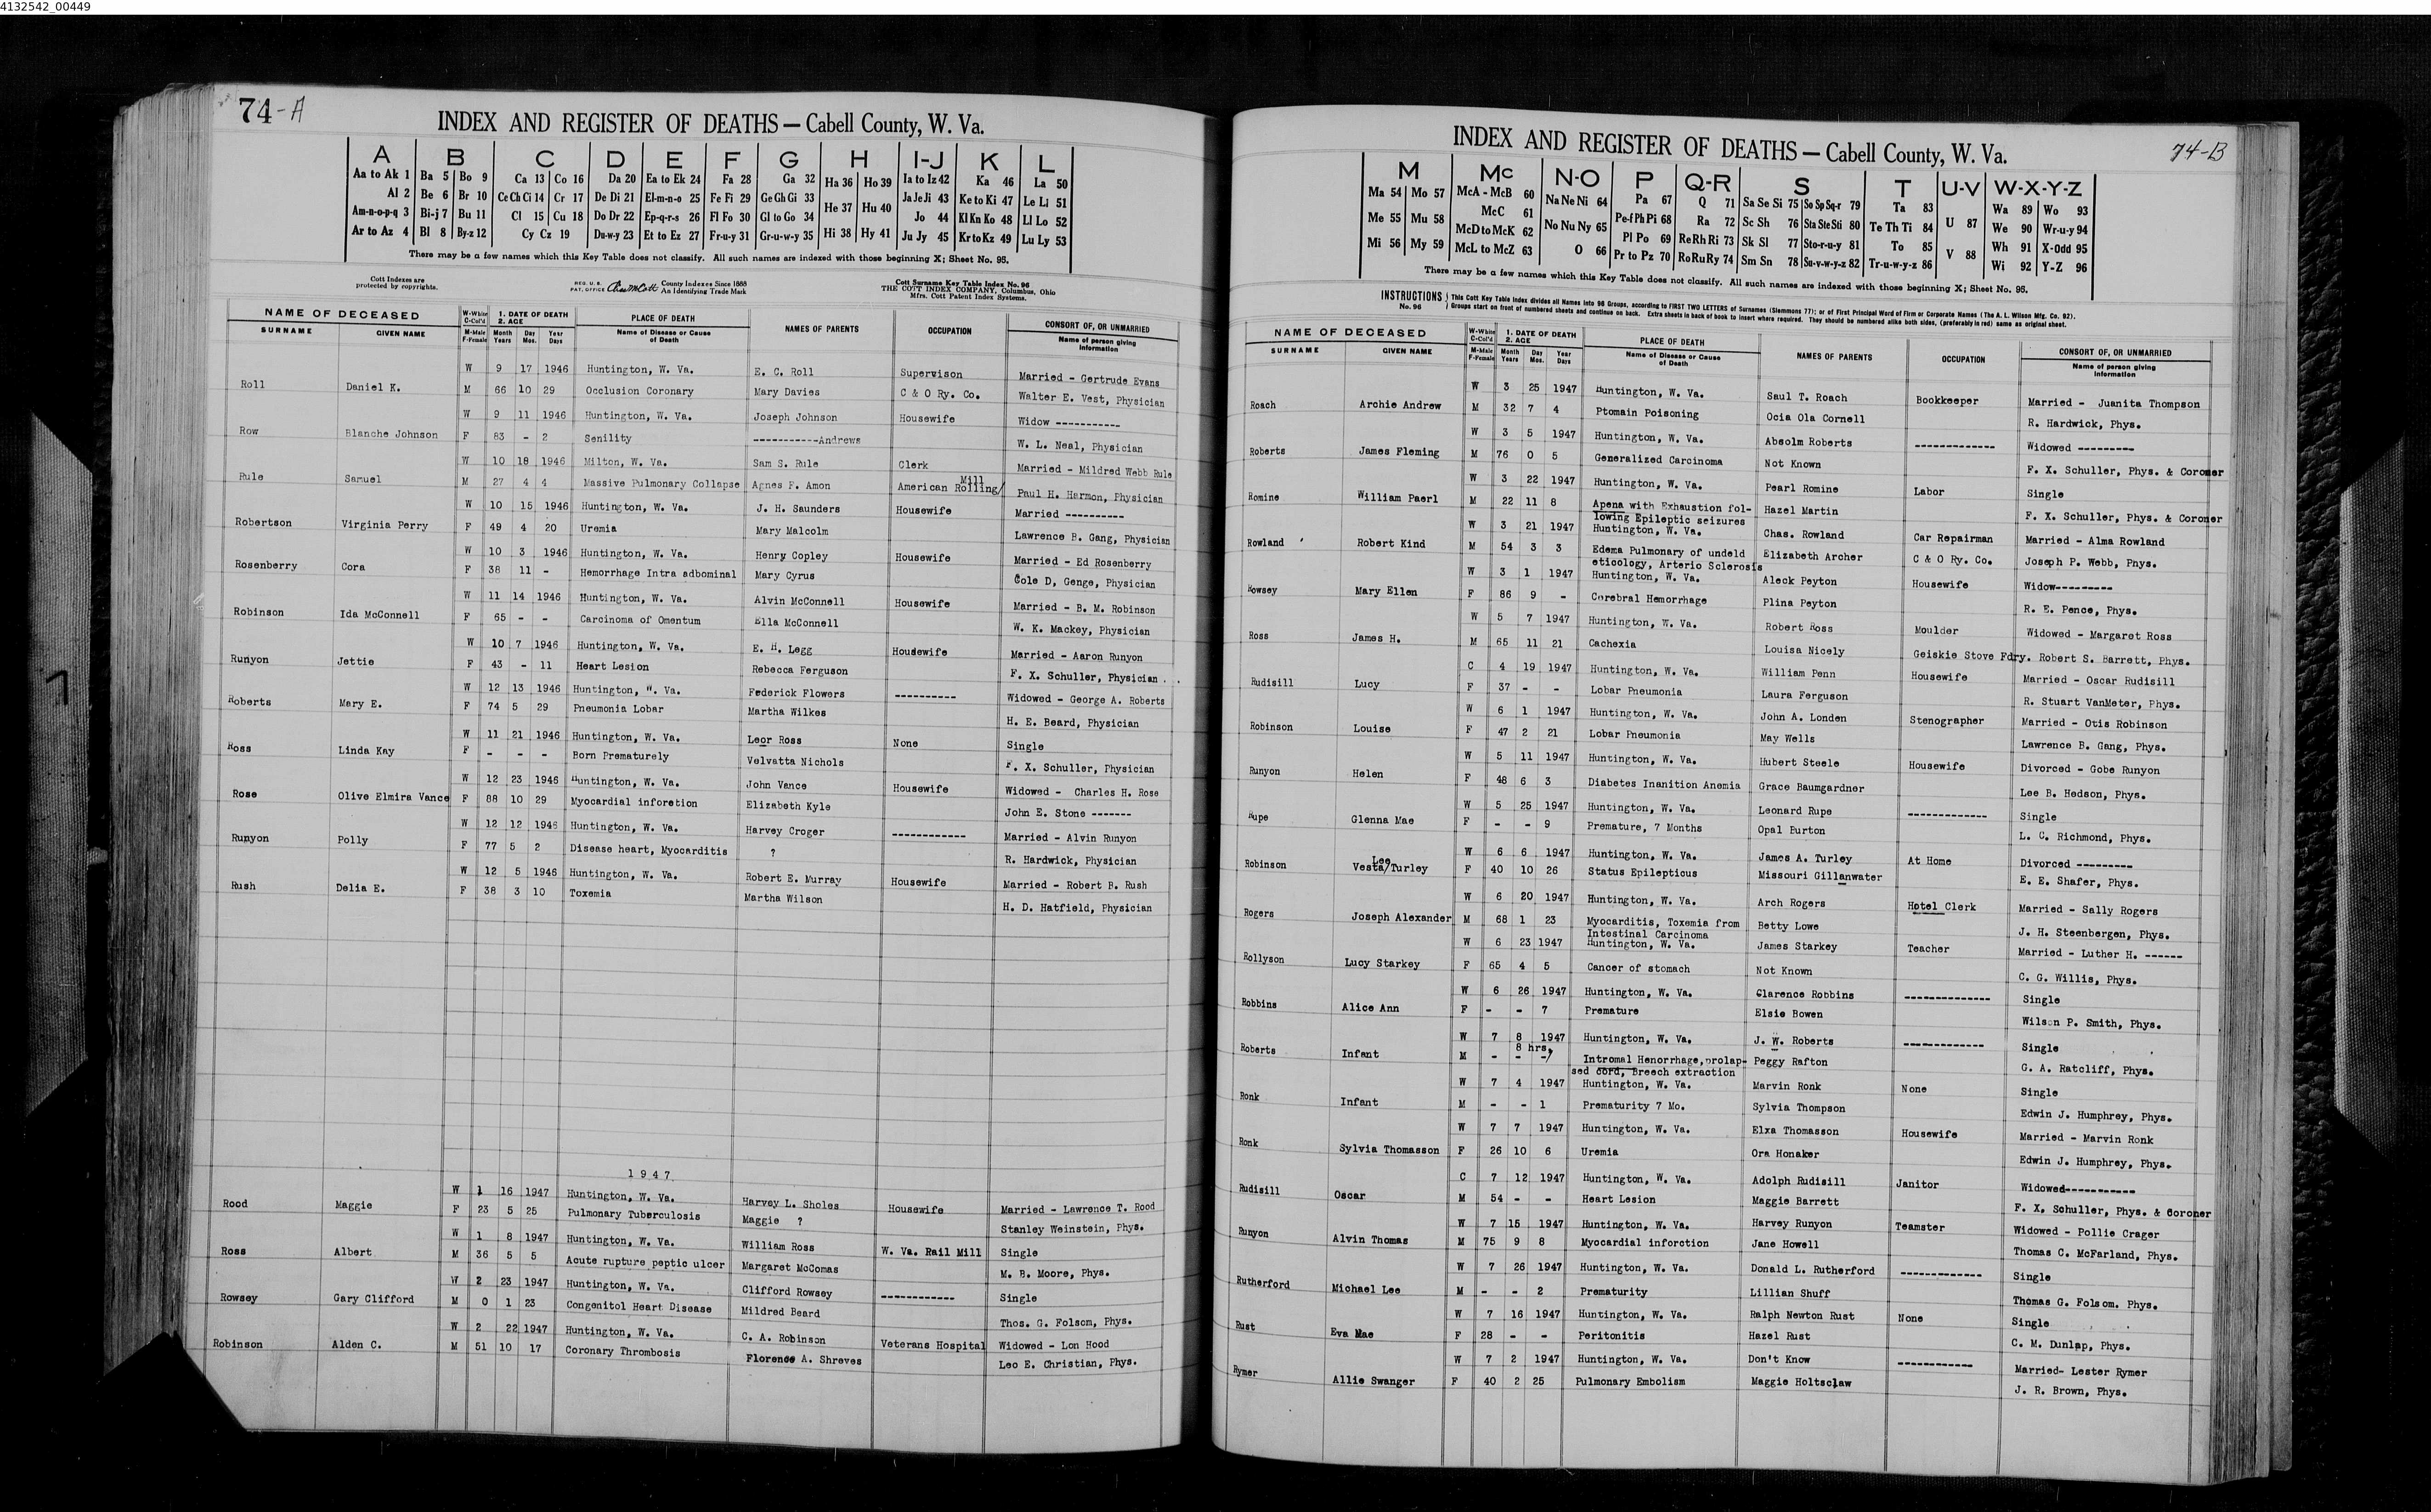 4132542_00449
74-A
INDEX AND REGISTER OF DEATHS — Cabell County, W. Va.
A B C D E F G H I-J K L
Aa to Ak 1 Ba 5 Bo 9 Ca 13 Co 16 Da 20 Ea to Ek 24 Fa 28 Ga 32 Ha 36 Ho 39 Ia to Iz 42 Ka 46 La 50
Al 2 Be 6 Br 10 Ce Ch Ci 14 Cr 17 De Di 21 El-m-n-o 25 Fe Fi 29 Ge Gh Gi 33 He 37 Hu 40 Ja Je Ji 43 Ke to Ki 47 Le Li 51
Am-n-o-p-q 3 Bi-j 7 Bu 11 Cl 15 Cu 18 Do Dr 22 Ep-q-r-s 26 Fl Fo 30 Gl to Go 34 Jo 44 Kl Kn Ko 48 Ll Lo 52
Ar to Az 4 Bl 8 By-z 12 Cy Cz 19 Du-w-y 23 Et to Ez 27 Fr-u-y 31 Gr-u-w-y 35 Hi 38 Hy 41 Ju Jy 45 Kr to Kz 49 Lu Ly 53
There may be a few names which this Key Table does not classify. All such names are indexed with those beginning X; Sheet No. 95.
Cott Indexes are protected by copyrights.
REG. U. S. PAT. OFFICE County Indexes Since 1888 An Identifying Trade Mark
Cott Surname Key Table Index No. 96
THE COTT INDEX COMPANY, Columbus, Ohio
Mfrs. Cott Patent Index Systems.
NAME OF DECEASED W-White C-Col'd 1. DATE OF DEATH 2. AGE PLACE OF DEATH NAMES OF PARENTS OCCUPATION CONSORT OF, OR UNMARRIED
SURNAME GIVEN NAME M-Male F-Female Month Years Day Mos. Year Days Name of Disease or Cause of Death Name of person giving information
W 9 17 1946 Huntington, W. Va. E. C. Roll Supervison Married - Gertrude Evans
Roll Daniel K. M 66 10 29 Occlusion Coronary Mary Davies C & O Ry. Co. Walter E. Vest, Physician
W 9 11 1946 Huntington, W. Va. Joseph Johnson Housewife Widow -----------
Row Blanche Johnson F 83 - 2 Senility -----------Andrews W. L. Neal, Physician
W 10 18 1946 Milton, W. Va. Sam S. Rule Clerk Married - Mildred Webb Rule
Rule Samuel M 27 4 4 Massive Pulmonary Collapse Agnes F. Amon American Rolling/ Mill Paul H. Harmon, Physician
W 10 15 1946 Huntington, W. Va. J. H. Saunders Housewife Married ----------
Robertson Virginia Perry F 49 4 20 Uremia Mary Malcolm Lawrence B. Gang, Physician
W 10 3 1946 Huntington, W. Va. Henry Copley Housewife Married - Ed Rosenberry
Rosenberry Cora F 38 11 - Hemorrhage Intra adbominal Mary Cyrus Cole D, Genge, Physician
W 11 14 1946 Huntington, W. Va. Alvin McConnell Housewife Married - B. M. Robinson
Robinson Ida McConnell F 65 - - Carcinoma of Omentum Ella McConnell W. K. Mackey, Physician
W 10 7 1946 Huntington, W. Va. E. H. Legg Housewife Married - Aaron Runyon
Runyon Jettie F 43 - 11 Heart Lesion Rebecca Ferguson F. X. Schuller, Physician
W 12 13 1946 Huntington, W. Va. Federick Flowers ---------- Widowed - George A. Roberts
Roberts Mary E. F 74 5 29 Pneumonia Lobar Martha Wilkes H. E. Beard, Physician
W 11 21 1946 Huntington, W. Va. Leor Ross None Single
Ross Linda Kay F - - - Born Prematurely Velvatta Nichols F. X. Schuller, Physician
W 12 23 1946 Huntington, W. Va. John Vance Housewife Widowed - Charles H. Rose
Rose Olive Elmira Vance F 88 10 29 Myocardial inforetion Elizabeth Kyle John E. Stone -------
W 12 12 1946 Huntington, W. Va. Harvey Croger ------------ Married - Alvin Runyon
Runyon Polly F 77 5 2 Disease heart, Myocarditis ? R. Hardwick, Physician
W 12 5 1946 Huntington, W. Va. Robert E. Murray Housewife Married - Robert B. Rush
Rush Delia E. F 38 3 10 Toxemia Martha Wilson H. D. Hatfield, Physician
1947
W 1 16 1947 Huntington, W. Va. Harvey L. Sholes Housewife Married - Lawrence T. Rood
Rood Maggie F 23 5 25 Pulmonary Tuberculosis Maggie ? Stanley Weinstein, Phys.
W 1 8 1947 Huntington, W. Va. William Ross W. Va. Rail Mill Single
Ross Albert M 36 5 5 Acute rupture peptic ulcer Margaret McComas M. B. Moore, Phys.
W 2 23 1947 Huntington, W. Va. Clifford Rowsey ------------ Single
Rowsey Gary Clifford M 0 1 23 Congenitol Heart Disease Mildred Beard Thos. G. Folsom, Phys.
W 2 22 1947 Huntington, W. Va. C. A. Robinson Veterans Hospital Widowed - Lon Hood
Robinson Alden C. M 51 10 17 Coronary Thrombosis Florence A. Shreves Leo E. Christian, Phys.
74-B
INDEX AND REGISTER OF DEATHS — Cabell County, W. Va.
M Mc N-O P Q-R S T U-V W-X-Y-Z
Ma 54 Mo 57 McA - McB 60 Na Ne Ni 64 Pa 67 Q 71 Sa Se Si 75 So Sp Sq-r 79 Ta 83 U 87 Wa 89 Wo 93
Me 55 Mu 58 McC 61 No Nu Ny 65 Pe-f Ph Pi 68 Ra 72 Sc Sh 76 Sta Ste Sti 80 Te Th Ti 84 V 88 We 90 Wr-u-y 94
Mi 56 My 59 McD to McK 62 O 66 Pl Po 69 Re Rh Ri 73 Sk Sl 77 Sto-r-u-y 81 To 85 Wh 91 X-Odd 95
McL to McZ 63 Pr to Pz 70 Ro Ru Ry 74 Sm Sn 78 Su-v-w-y-z 82 Tr-u-w-y-z 86 Wi 92 Y-Z 96
There may be a few names which this Key Table does not classify. All such names are indexed with those beginning X; Sheet No. 95.
INSTRUCTIONS No. 96 This Cott Key Table Index divides all Names into 96 Groups, according to FIRST TWO LETTERS of Surnames (Slemmons 77); or of First Principal Word of Firm or Corporate Names (The A. L. Wilson Mfg. Co. 92).
Groups start on front of numbered sheets and continue on back. Extra sheets in back of book to insert where required. They should be numbered alike both sides, (preferably in red) same as original sheet.
NAME OF DECEASED W-White C-Col'd 1. DATE OF DEATH 2. AGE PLACE OF DEATH NAMES OF PARENTS OCCUPATION CONSORT OF, OR UNMARRIED
SURNAME GIVEN NAME M-Male F-Female Month Years Day Mos. Year Days Name of Disease or Cause of Death Name of person giving information
W 3 25 1947 Huntington, W. Va. Saul T. Roach Bookkeeper Married - Juanita Thompson
Roach Archie Andrew M 32 7 4 Ptomain Poisoning Ocia Ola Cornell R. Hardwick, Phys.
W 3 5 1947 Huntington, W. Va. Absolm Roberts ------------- Widowed ---------
Roberts James Fleming M 76 0 5 Generalized Carcinoma Not Known F. X. Schuller, Phys. & Coroner
W 3 22 1947 Huntington, W. Va. Pearl Romine Labor Single
Romine William Paerl M 22 11 8 Apena with Exhaustion fol- Hazel Martin F. X. Schuller, Phys. & Coroner
lowing Epileptic seizures
W 3 21 1947 Huntington, W. Va. Chas. Rowland Car Repairman Married - Alma Rowland
Rowland Robert Kind M 54 3 3 Edema Pulmonary of undeld Elizabeth Archer C & O Ry. Co. Joseph P. Webb, Phys.
eticology, Arterio Sclerosis
W 3 1 1947 Huntington, W. Va. Aleck Peyton Housewife Widow---------
Rowsey Mary Ellen F 86 9 - Cerebral Hemorrhage Plina Peyton R. E. Pence, Phys.
W 5 7 1947 Huntington, W. Va. Robert Ross Moulder Widowed - Margaret Ross
Ross James H. M 65 11 21 Cachexia Louisa Nicely Geiskie Stove Fdry. Robert S. Barrett, Phys.
C 4 19 1947 Huntington, W. Va. William Penn Housewife Married - Oscar Rudisill
Rudisill Lucy F 37 - - Lobar Pneumonia Laura Ferguson R. Stuart VanMeter, Phys.
W 6 1 1947 Huntington, W. Va. John A. Londen Stenographer Married - Otis Robinson
Robinson Louise F 47 2 21 Lobar Pneumonia May Wells Lawrence B. Gang, Phys.
W 5 11 1947 Huntington, W. Va. Hubert Steele Housewife Divorced - Gobe Runyon
Runyon Helen F 48 6 3 Diabetes Inanition Anemia Grace Baumgardner Lee B. Hedson, Phys.
W 5 25 1947 Huntington, W. Va. Leonard Rupe ------------- Single
Rupe Glenna Mae F - - 9 Premature, 7 Months Opal Burton L. C. Richmond, Phys.
W 6 6 1947 Huntington, W. Va. James A. Turley At Home Divorced ---------
Robinson Vesta/Turley Lee F 40 10 26 Status Epilepticus Missouri Gillanwater E. E. Shafer, Phys.
W 6 20 1947 Huntington, W. Va. Arch Rogers Hotel Clerk Married - Sally Rogers
Rogers Joseph Alexander M 68 1 23 Myocarditis, Toxemia from Betty Lowe J. H. Steenbergen, Phys.
Intestinal Carcinoma
W 6 23 1947 Huntington, W. Va. James Starkey Teacher Married - Luther H. ------
Rollyson Lucy Starkey F 65 4 5 Cancer of stomach Not Known C. G. Willis, Phys.
W 6 26 1947 Huntington, W. Va. Clarence Robbins -------------- Single
Robbins Alice Ann F - - 7 Premature Elsie Bowen Wilson P. Smith, Phys.
W 7 8 1947 Huntington, W. Va. J. W. Roberts ------------- Single
8 hrs.
Roberts Infant M - - -/ Intromal Henorrhage,prolap- Peggy Rafton G. A. Ratcliff, Phys.
sed cord, Breech extraction
W 7 4 1947 Huntington, W. Va. Marvin Ronk None Single
Ronk Infant M - - 1 Prematurity 7 Mo. Sylvia Thompson Edwin J. Humphrey, Phys.
W 7 7 1947 Huntington, W. Va. Elxa Thomasson Housewife Married - Marvin Ronk
Ronk Sylvia Thomasson F 26 10 6 Uremia Ora Honaker Edwin J. Humphrey, Phys.
C 7 12 1947 Huntington, W. Va. Adolph Rudisill Janitor Widowed-----------
Rudisill Oscar M 54 - - Heart Lesion Maggie Barrett F. X. Schuller, Phys. & Coroner
W 7 15 1947 Huntington, W. Va. Harvey Runyon Teamster Widowed - Pollie Crager
Runyon Alvin Thomas M 75 9 8 Myocardial inforction Jane Howell Thomas C. McFarland, Phys.
W 7 26 1947 Huntington, W. Va. Donald L. Rutherford ------------- Single
Rutherford Michael Lee M - - 2 Prematurity Lillian Shuff Thomas G. Folsom. Phys.
W 7 16 1947 Huntington, W. Va. Ralph Newton Rust None Single
Rust Eva Mae F 28 - - Peritonitis Hazel Rust C. M. Dunlap, Phys.
W 7 2 1947 Huntington, W. Va. Don't Know ------------ Married- Lester Rymer
Rymer Allie Swanger F 40 2 25 Pulmonary Embolism Maggie Holtsclaw J. R. Brown, Phys.